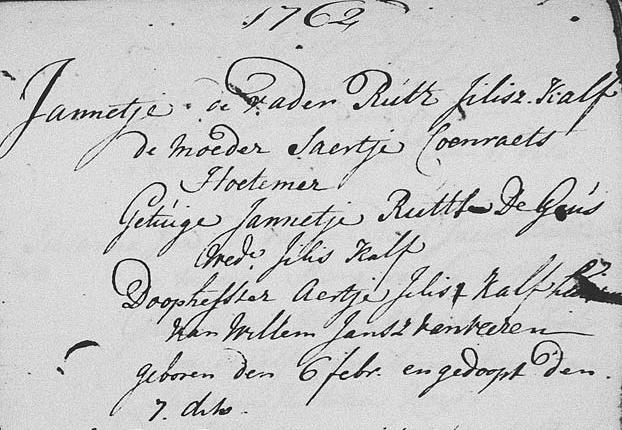 1762
Jannetje de vader Rutt Jilisz. Kalf
de moeder Saertje Coenraets
Hoetemer
Getuige Jannetje Rutte De Geus
wede. Jilis Kalf
Doophefster Aertje Jilisz Kalf
van Willem Jansz van
geboren den 6 febr. en gedoopt den
7. dito.